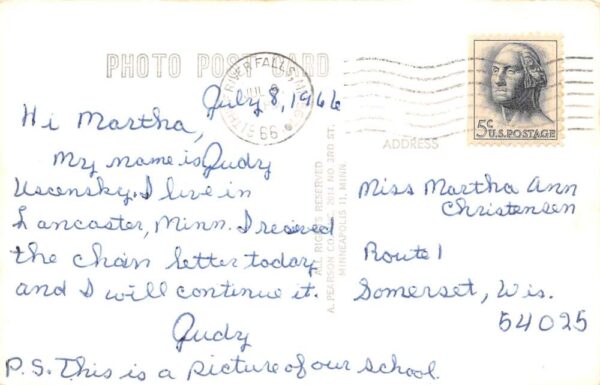 PHOTO POST CARD
RIVER FALLS, MINN.
JUL 8
1966
July 8, 1966
Hi Martha,
My name is Judy
Uscensky. I live in
Lancaster, Minn. I received
the chain letter today
and I will continue it.
Judy
P.S. This is a picture of our school.
ALL RIGHTS RESERVED
A. PEARSON CO. 2011 NO. 3RD ST.
MINNEAPOLIS 11, MINN.
5¢
U.S. POSTAGE
ADDRESS
Miss Martha Ann
Christensen
Route 1
Somerset, Wis.
54025